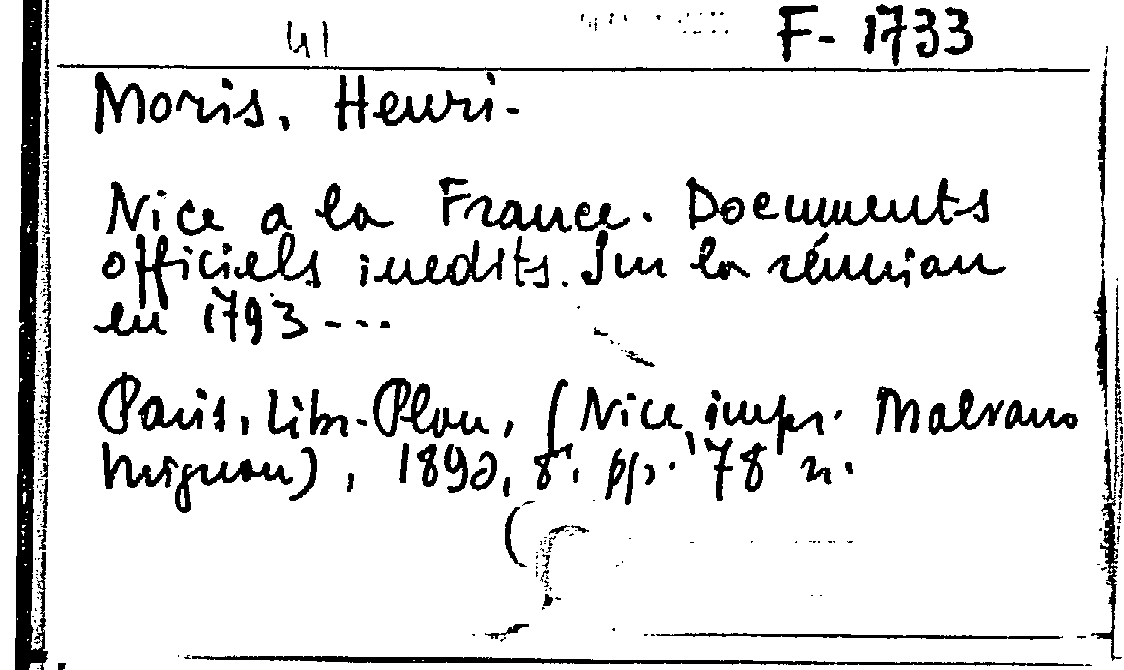 41 F- 1733
Moris, Henri-
Nice a la France. Documents
officiels inedits. Sur la réunion
en 1793 ---
Paris, Libr. Plon, (Nice, impr. Malvano
Mignon), 1890, 8°, pp. 78 n.